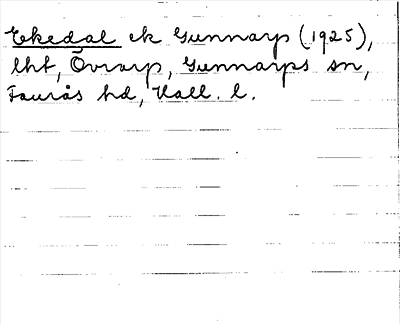 Ekedal ek Gunnarp (1925),
lht, Övrarp, Gunnarps sn,
Faurås hd, Hall. l.